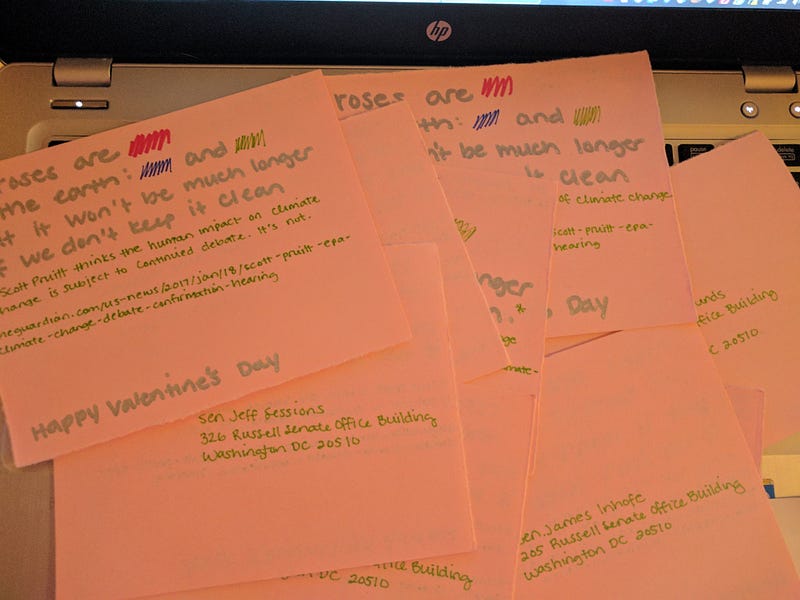 hp
roses are
and
the earth:
it won't be much longer
if we don't keep it clean
Scott Pruitt thinks the human impact on climate
change is subject to continued debate. It's not.
theguardian.com/us-news/2017/jan/18/scott-pruitt-epa-
climate-change-debate-confirmation-hearing
Happy Valentine's Day
roses are
and
be much longer
it clean
of climate change
scott-pruitt-epa-
hearing
Day
pause
delete
Sen Jeff Sessions
326 Russell Senate Office Building
Washington DC 20510
Office Building
DC 20510
Sen. James Inhofe
205 Russell Senate Office Building
Washington DC 20510
Office Building
DC 20510